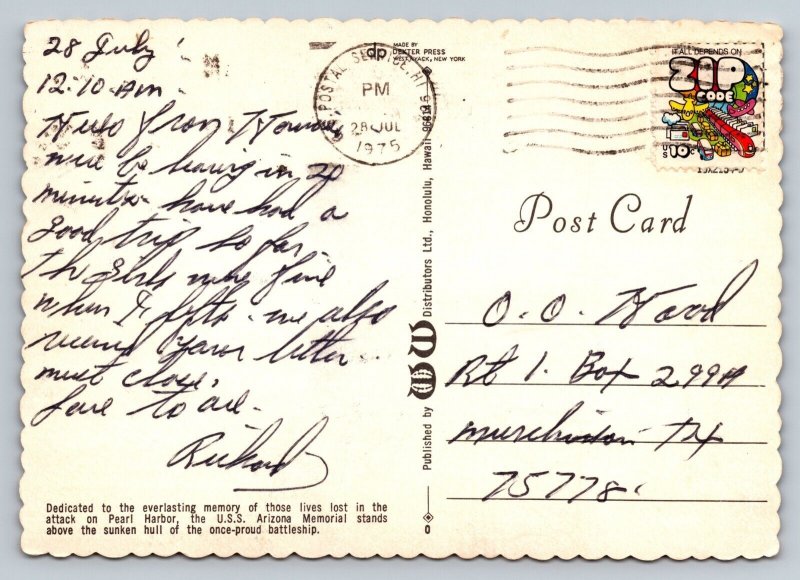 28 July
12:10 Am
Hello from Hawaii,
will be leaving in 20
minutes have had a
good trip so far
the girls were fine
when I left. we also
received your letter
must close,
Love to all.
Richard
Dedicated to the everlasting memory of those lives lost in the
attack on Pearl Harbor, the U.S.S. Arizona Memorial stands
above the sunken hull of the once-proud battleship.
dp
MADE BY
DEXTER PRESS
WEST NYACK, NEW YORK
POSTAL SERVICE, HI
PM
28 JUL
1975
IT ALL DEPENDS ON
ZIP
CODE
US 10c
Published by
Distributors Ltd., Honolulu, Hawaii 96814
0
Post Card
O. O. Wood
Rt 1. Box 299A
Murchison TX
75778